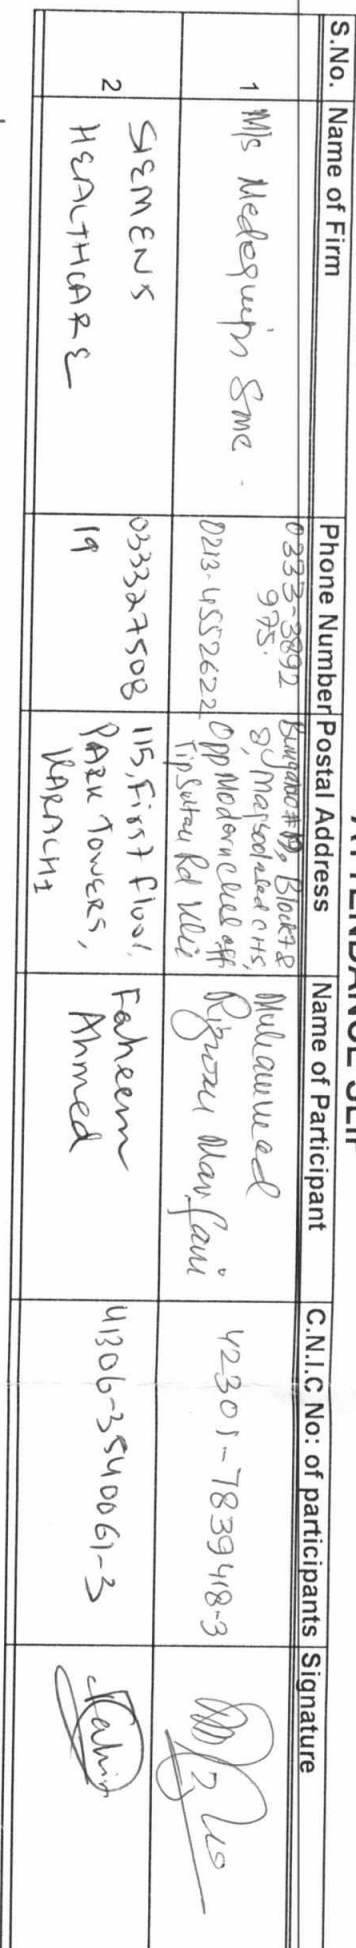 ATTENDANCE SLIP
S.No. Name of Firm Phone Number Postal Address Name of Participant C.N.I.C No: of participants Signature
1 M/s Medequips Smc.
0333-3892
975.
0213-4552622
Bungalow # 19, Block 7 &
8, Maqboolabad CHS,
Opp Modern Club off
Tipu Sultan Rd Khi
Muhammad
Rizwan
42301-7839418-3
2 SIEMENS
HEALTHCARE
033327508
19
115, First Floor,
PARK TOWERS,
KARACHI
Faheem
Ahmed
41306-3540061-3